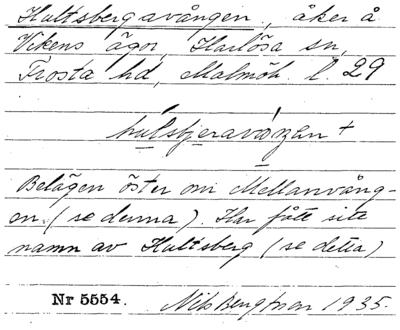 Hultsbergavången, åker å
Vikens ägor, Harlösa sn,
Frosta hd, Malmöh. l. 29
hulsbjeravånan +
Belägen öster om Mellanvång-
en (se denna). Har fått sitt
namn av Hultsberg (se detta)
Nr 5554. Nils Bengtson 1935.